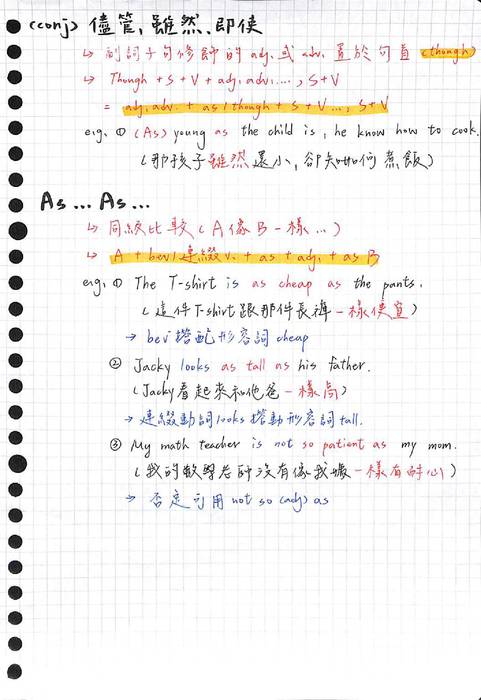 (conj) 儘管, 雖然, 即使
↳ 副詞子句修飾的 adj. 或 adv. 置於句首 (though)
↳ Though + S + V + adj, adv. ..., S + V
= adj, adv. + as / though + S + V ..., S + V
e.g. ① (As) young as the child is, he know how to cook.
(那孩子雖然還小, 卻知如何煮飯)
As ... As ...
↳ 同級比較 (A 像 B 一樣 ...)
↳ A + beV / 連綴 V. + as + adj. + as B
e.g. ① The T-shirt is as cheap as the pants.
(這件 T-shirt 跟那件長褲一樣便宜)
→ beV 搭配形容詞 cheap
② Jacky looks as tall as his father.
(Jacky 看起來和他爸一樣高)
→ 連綴動詞 looks 搭動形容詞 tall.
③ My math teacher is not so patient as my mom.
(我的數學老師沒有像我媽一樣有耐心)
→ 否定可用 not so (adj) as